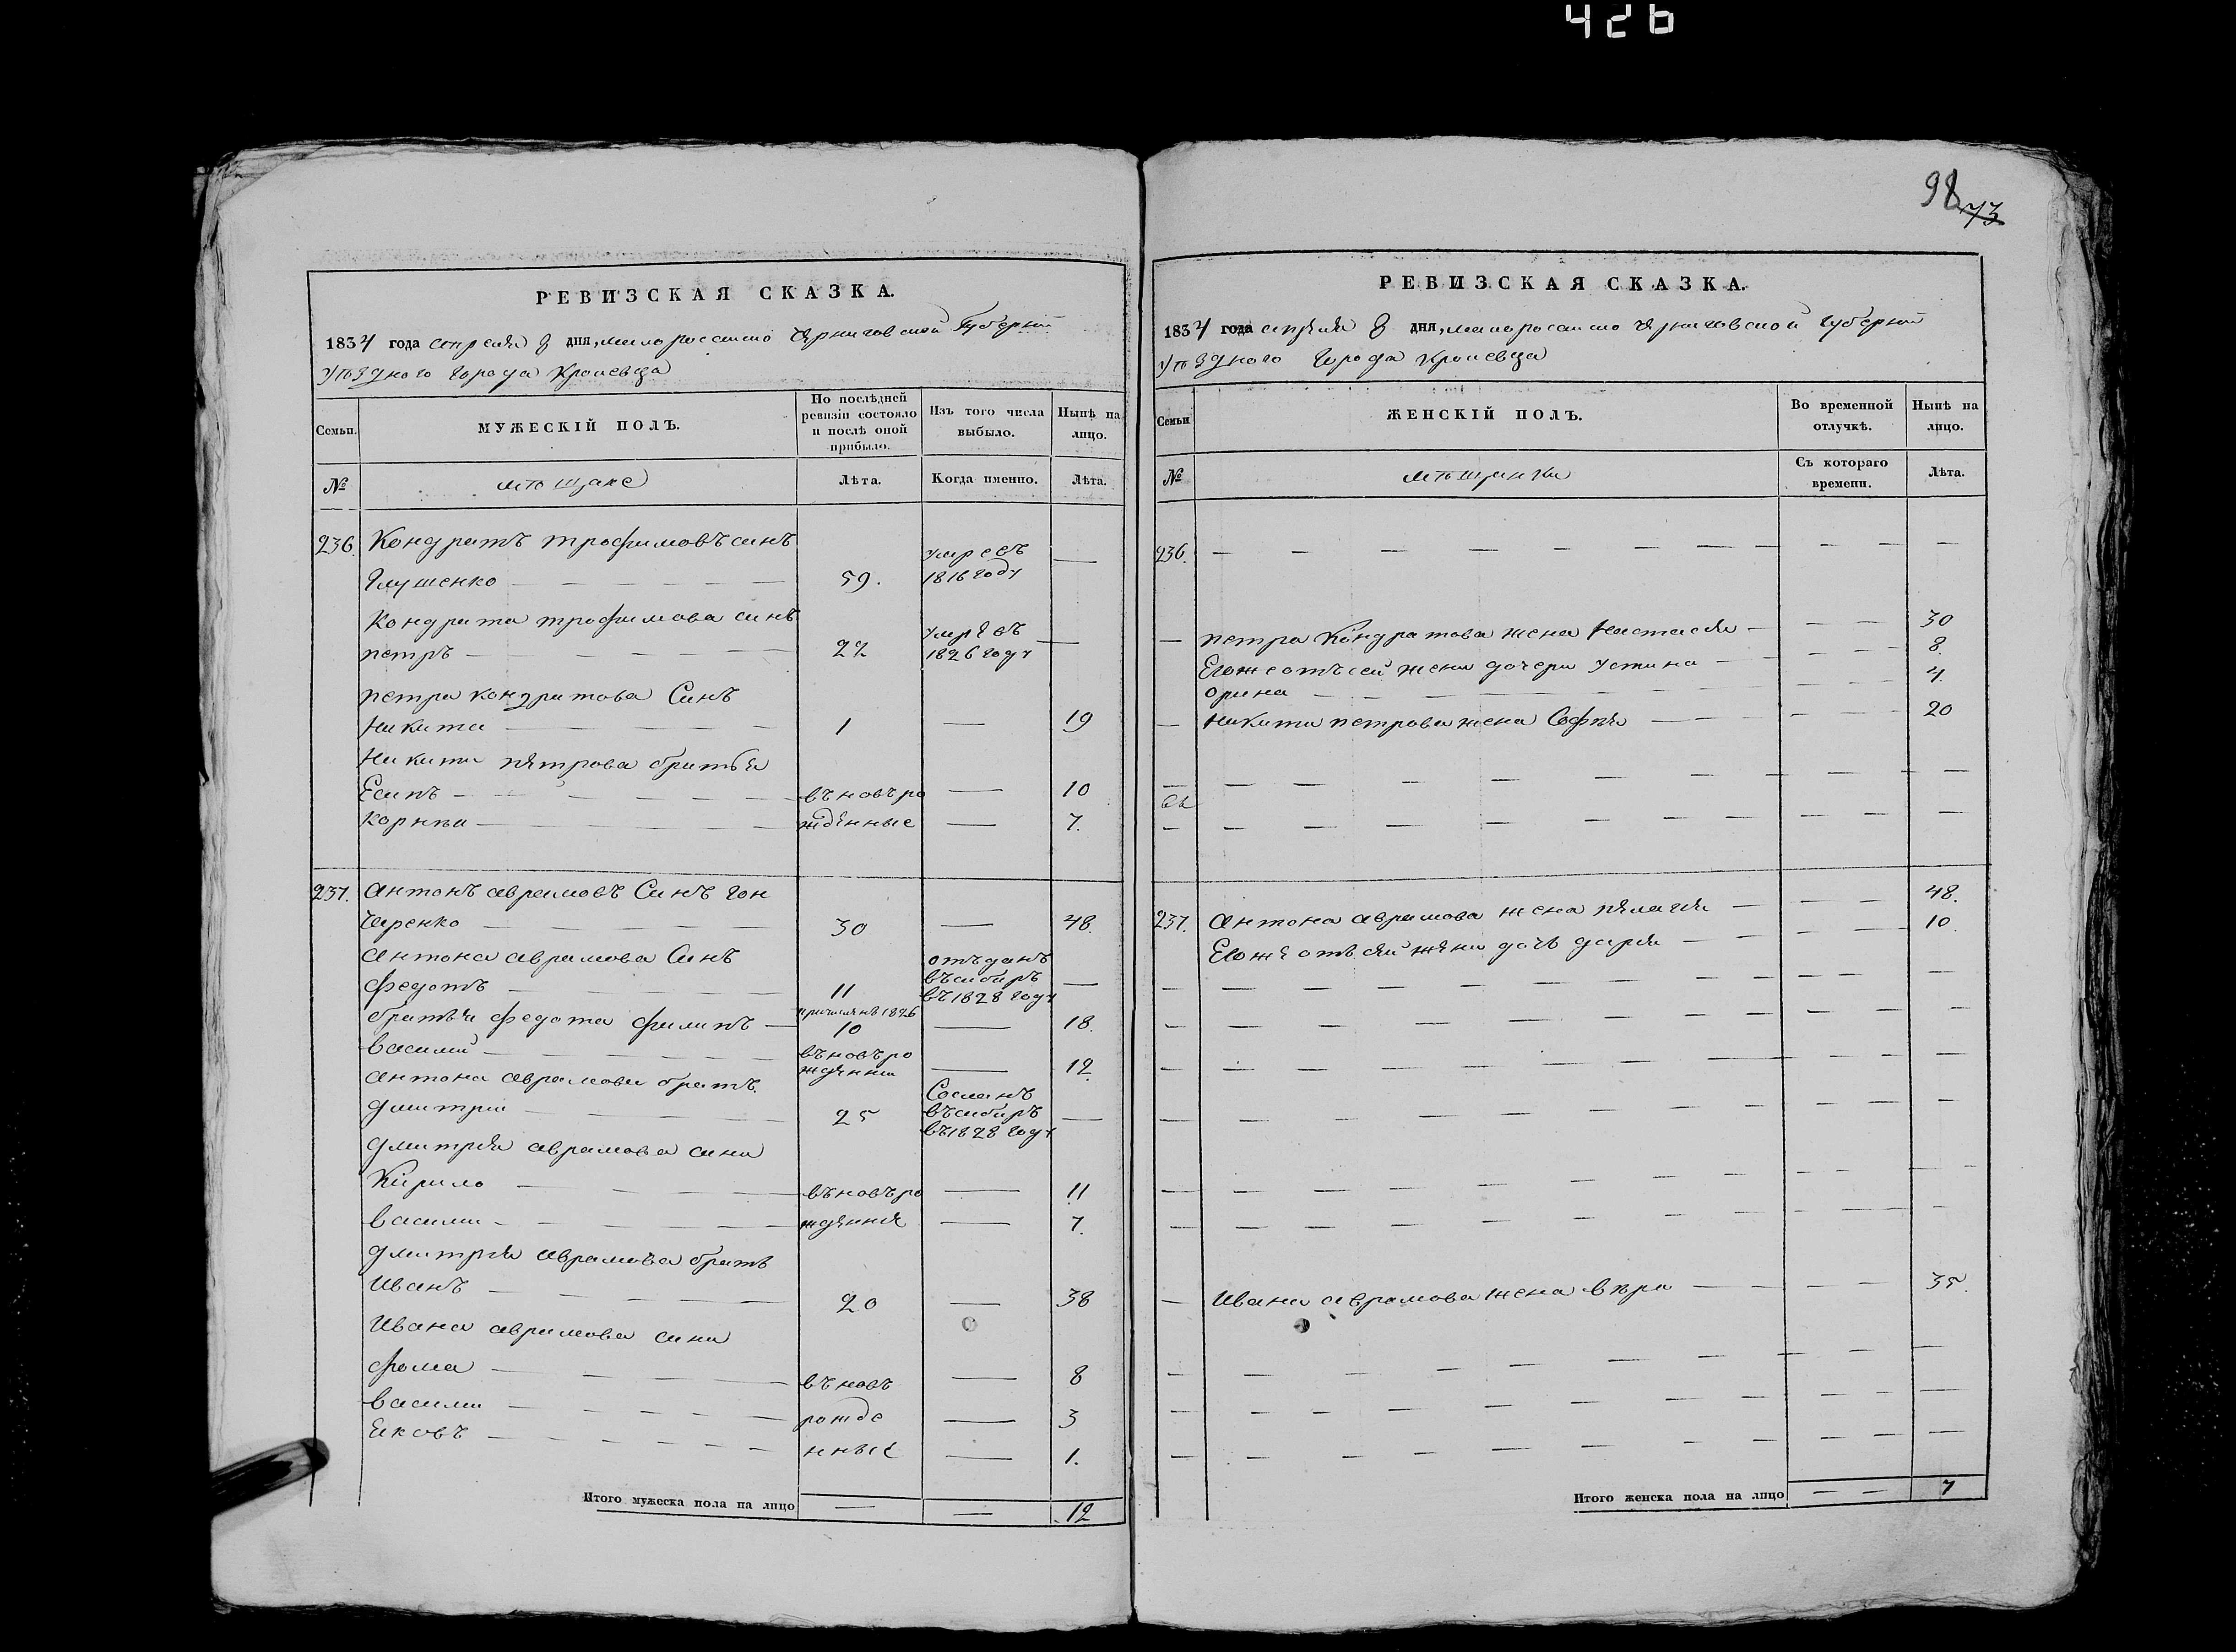 426
98
73
РЕВИЗСКАЯ СКАЗКА.
1834 года апреля 8 дня, малоросаиско чярниговской Губернии
Уѣздного Города Кролевца
Семьи.
МУЖЕСКІЙ ПОЛЪ.
По послѣдней ревизіи состояло и послѣ оной прибыло.
Изъ того числа выбыло.
Нынѣ на лицо.
№
мѣщане
Лѣта.
Когда именно.
Лѣта.
236. Кондратъ трофимовъ синъ
Глушенко — 59. умре въ 1816 году —
Кондрата трофимова синъ
петръ — 22 умрѣ въ 1826 году —
петра кондратова Синъ
Никита — 1 — 19
Никити пятрова братья
Есипъ — въ новъ ро — 10
корнѣи — жденные — 7.
237. антонъ аврамовъ Синъ Гон
чаренко — 30 — 48.
антона аврамова Синъ
федотъ — 11 отъданъ въ сибиръ въ 1828 году —
братья федота филипъ — 10 — 18.
василий — въ новъ ро ждянни — 12.
антона аврамова братъ.
дмитрии — 25 Сосланъ въ сибиръ въ 1828 году —
дмитрия аврамова сини
Кирило — въ новъ ро — 11
васили — ждяния — 7.
дмитрия аврамова братъ
Иванъ — 20 — 38
Ивана аврамова сини
фома — въ новъ — 8
васили — рожде — 3
Яковъ — нные — 1.
Итого мужеска пола на лицо — — 12
РЕВИЗСКАЯ СКАЗКА.
1834 года апряля 8 дня, малоросаиско чярниговской Губернии
Уѣздного Города Кролевца
Семьи
ЖЕНСКІЙ ПОЛЪ.
Во временной отлучкѣ.
Нынѣ на лицо.
№
мѣщанки
Съ котораго времени.
Лѣта.
236.
петра Кондратова жена Настасия — 30
Егоже отъ сей жени дочери Устина — 8.
орина — 4.
Никити петрова жена Софѣя — 20
237. антона аврамова жена пялагия — 48.
Егожя отъ сяй жяни дочъ дария — 10.
Ивана аврамова жена вѣра — 35.
Итого женска пола на лицо — — 7